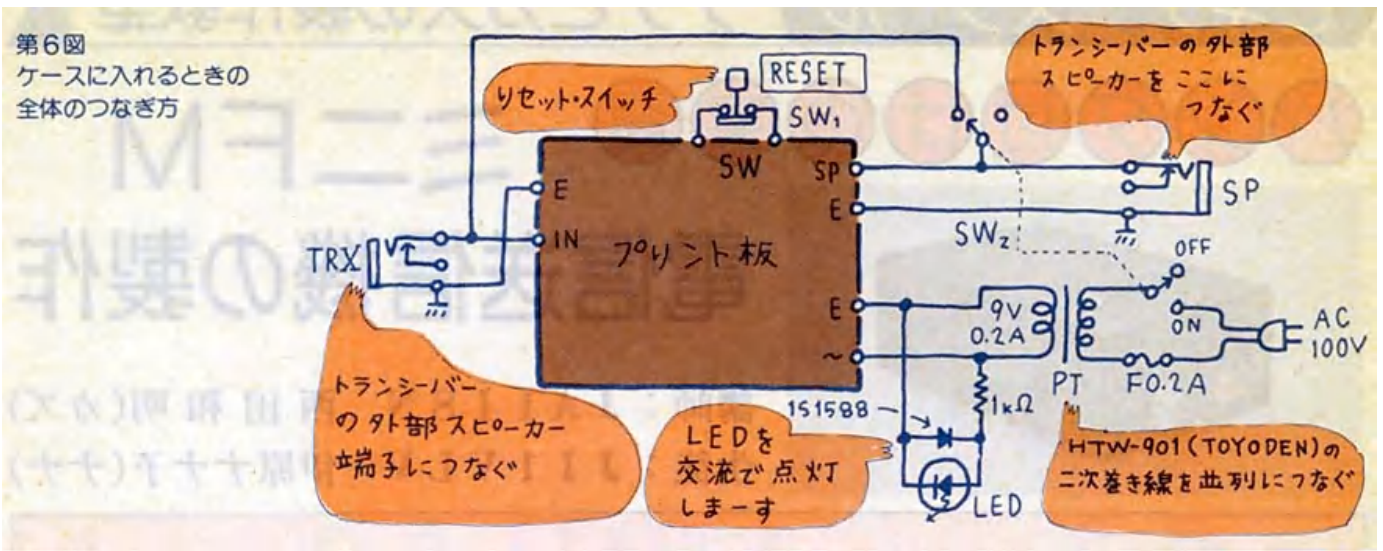 第6図
ケースに入れるときの
全体のつなぎ方
リセット・スイッチ
RESET
SW₁
SW
トランシーバーの外部
スピーカーをここに
つなぐ
E
IN
プリント板
SP
E
E
~
TRX
SP
SW₂
OFF
ON
9V
0.2A
PT
F0.2A
AC
100V
1S1588
1kΩ
LED
トランシーバー
の外部スピーカー
端子につなぐ
LEDを
交流で点灯
しまーす
HTW-901(TOYODEN)の
二次巻き線を並列につなぐ
ミニFM
電信送信機の製作